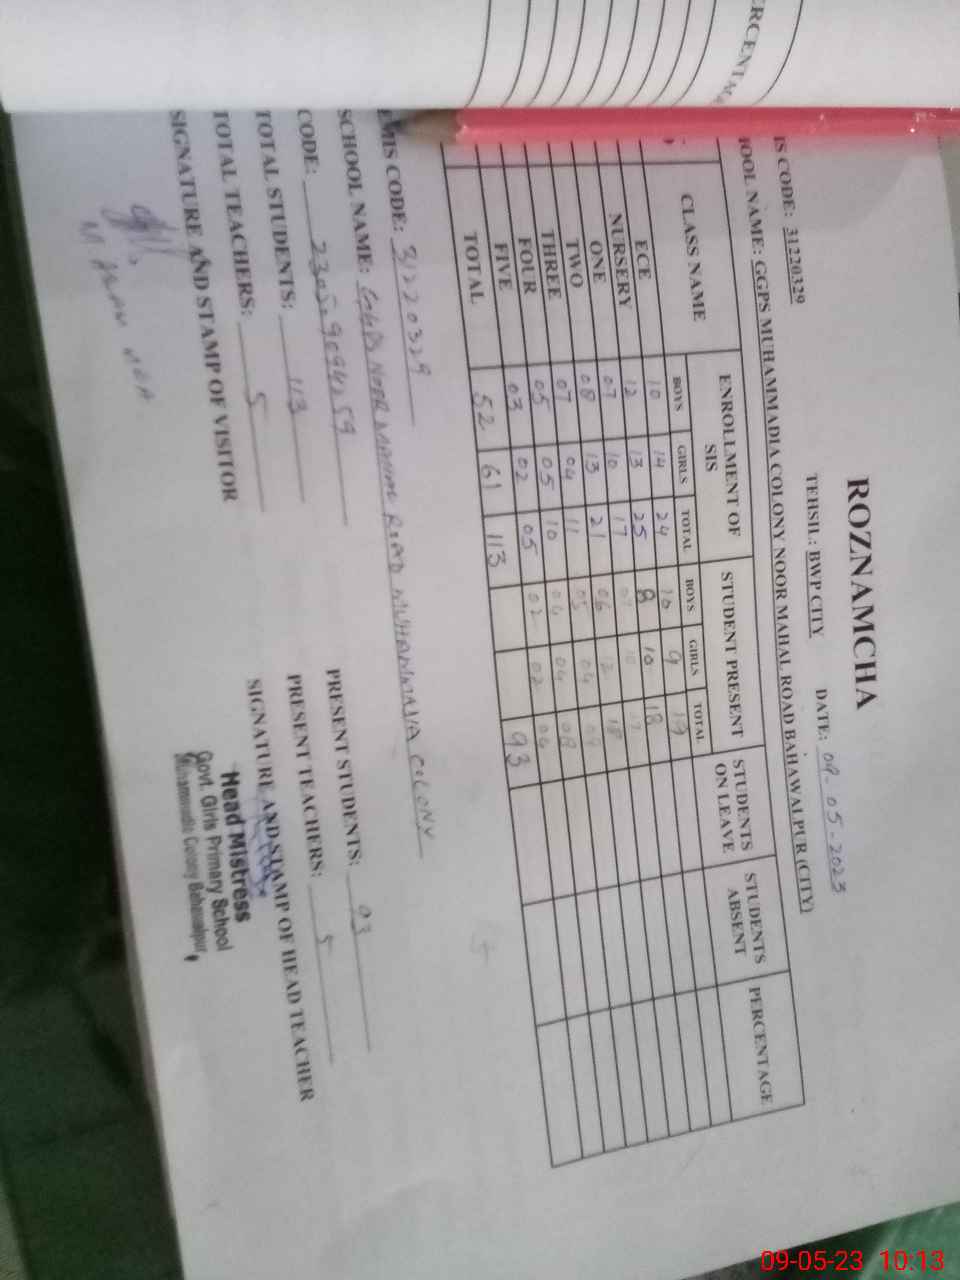 ERCENTA
ROZNAMCHA
IS CODE: 31220329 TEHSIL: BWP CITY DATE: 09-05-2023
OOL NAME: GGPS MUHAMMADIA COLONY NOOR MAHAL ROAD BAHAWALPUR (CITY)
CLASS NAME ENROLLMENT OF SIS STUDENT PRESENT STUDENTS ON LEAVE STUDENTS ABSENT PERCENTAGE
BOYS GIRLS TOTAL BOYS GIRLS TOTAL
ECE 10 14 24 10 9 19
NURSERY 12 13 25 8 10 18
ONE 07 10 17 07 10 17
TWO 08 13 21 06 12 18
THREE 07 04 11 05 04 09
FOUR 05 05 10 04 04 08
FIVE 03 02 05 02 02 04
TOTAL 52 61 113 93
EMIS CODE: 31220329
SCHOOL NAME: GGPS NOOR MAHAL ROAD MUHAMMADIA COLONY
CODE:
TOTAL STUDENTS: 113 PRESENT STUDENTS: 93
TOTAL TEACHERS: 5 PRESENT TEACHERS: 5
SIGNATURE AND STAMP OF VISITOR SIGNATURE AND STAMP OF HEAD TEACHER
Head Mistress
Govt. Girls Primary School
Muhammadia Colony Bahawalpur
09-05-23 10:13